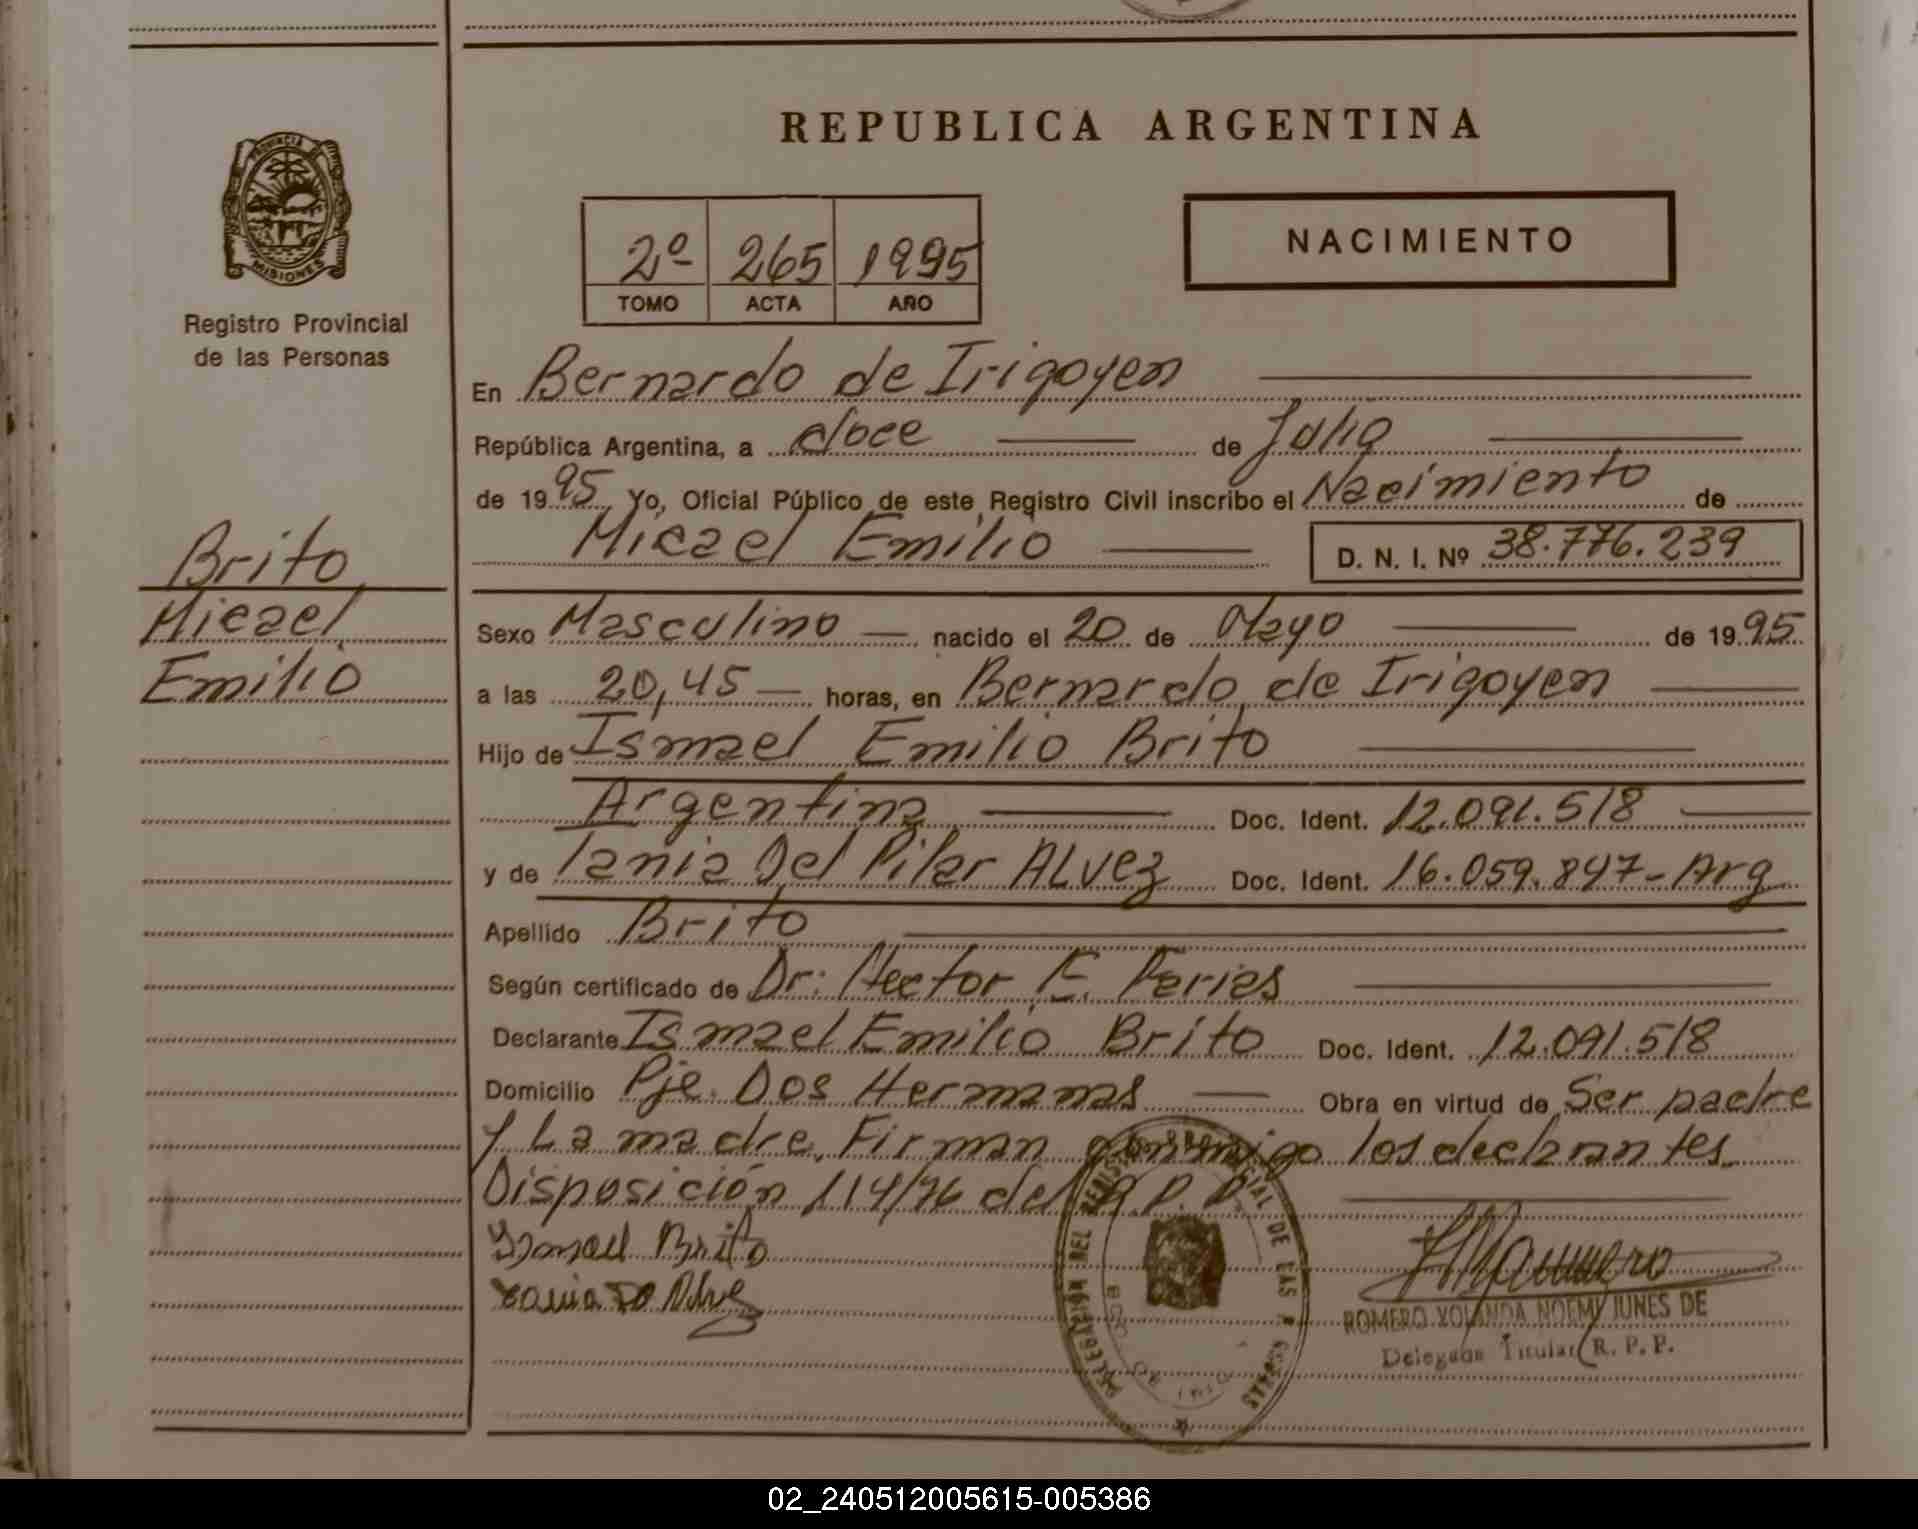 PROVINCIA
MISIONES
Registro Provincial
de las Personas
Brito
Micael
Emilio
REPUBLICA ARGENTINA
2º 265 1995
TOMO ACTA AÑO
NACIMIENTO
En Bernardo de Irigoyen
República Argentina, a doce de Julio
de 1995 Yo, Oficial Público de este Registro Civil inscribo el Nacimiento de
Micael Emilio D. N. I. Nº 38.776.239
Sexo Masculino nacido el 20 de Mayo de 1995
a las 20,45 horas, en Bernardo de Irigoyen
Hijo de Ismael Emilio Brito
Argentina Doc. Ident. 12.091.518
y de Tania Del Pilar ALvez Doc. Ident. 16.059.847-Arg
Apellido Brito
Según certificado de Dr: Hector E. Farias
Declarante Ismael Emilio Brito Doc. Ident. 12.091.518
Domicilio Pje. Dos Hermanas Obra en virtud de Ser padre
y La madre, Firman conmigo los declarantes
Disposición 114/76 del R.P.P.
Ismael Brito
DELEGACIÓN DEL REGISTRO PROVINCIAL DE LAS PERSONAS
ROMERO YOLANDA NOEMI JUNES DE
Delegada Titular R. P. P.
02_240512005615-005386